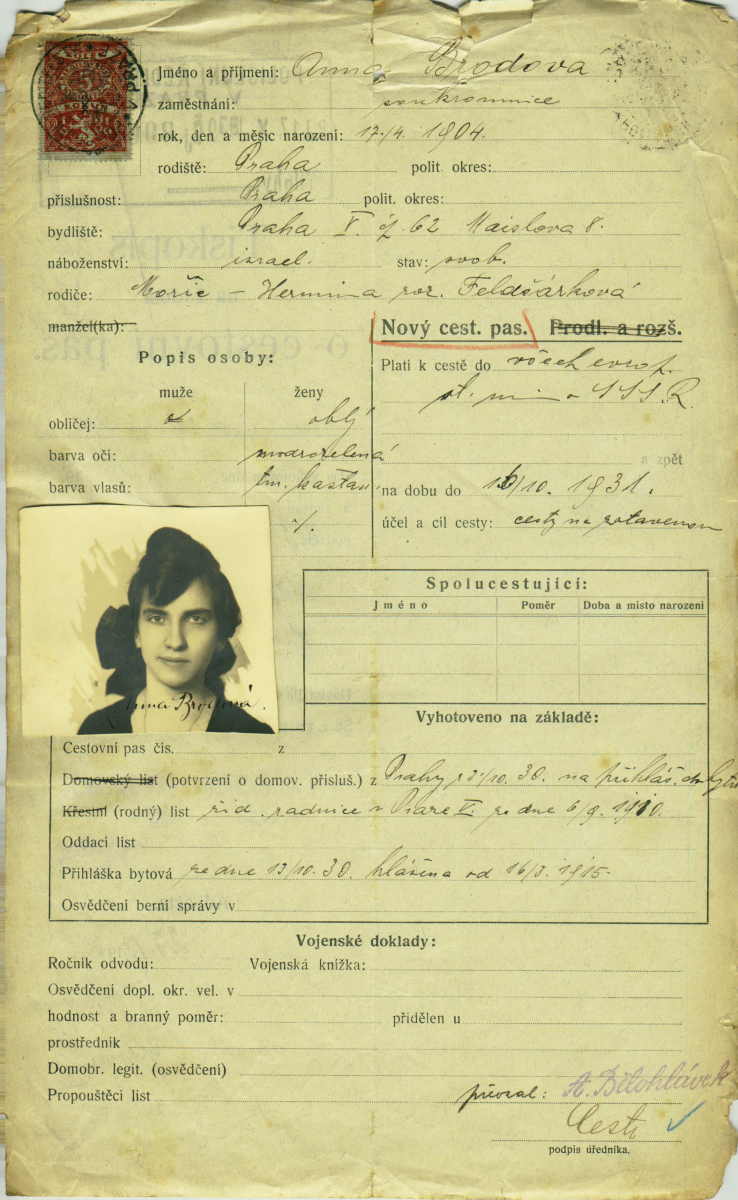 Jméno a příjmení: Anna Brodová
zaměstnání: soukromnice
rok, den a měsíc narození: 17/4. 1904.
rodiště: Praha polit. okres:
příslušnost: Praha polit. okres:
bydliště: Praha V. čp. 62 Maislova 8.
náboženství: israel. stav: svob.
rodiče: Mořic – Hermina roz. Feldšárková
manžel(ka):
Nový cest. pas. Prodl. a rozš.
Popis osoby:
Platí k cestě do všech evrop.
muže ženy
st. mimo SSSR.
obličej: oblý
barva očí: modrozelená
a zpět
barva vlasů: tm. kaštan.
na dobu do 16/10. 1931.
účel a cíl cesty: cesty na zotavenou
Anna Brodová.
Spolucestující:
Jméno Poměr Doba a místo narození
Vyhotoveno na základě:
Cestovní pas čís. z
Domovský list (potvrzení o domov. přísluš.) z Prahy /10. 30. na přihláš.
Křestní (rodný) list žid. radnice v Praze V. ze dne 6/9. 1910.
Oddací list
Přihláška bytová ze dne 13/10. 30. hlášena od 16/3. 1915.
Osvědčení berní správy v
Vojenské doklady:
Ročník odvodu: Vojenská knížka:
Osvědčení dopl. okr. vel. v
hodnost a branný poměr: přidělen u
prostředník
Domobr. legit. (osvědčení)
Propouštěcí list
převzal: A. Bělohlávek
podpis úředníka.